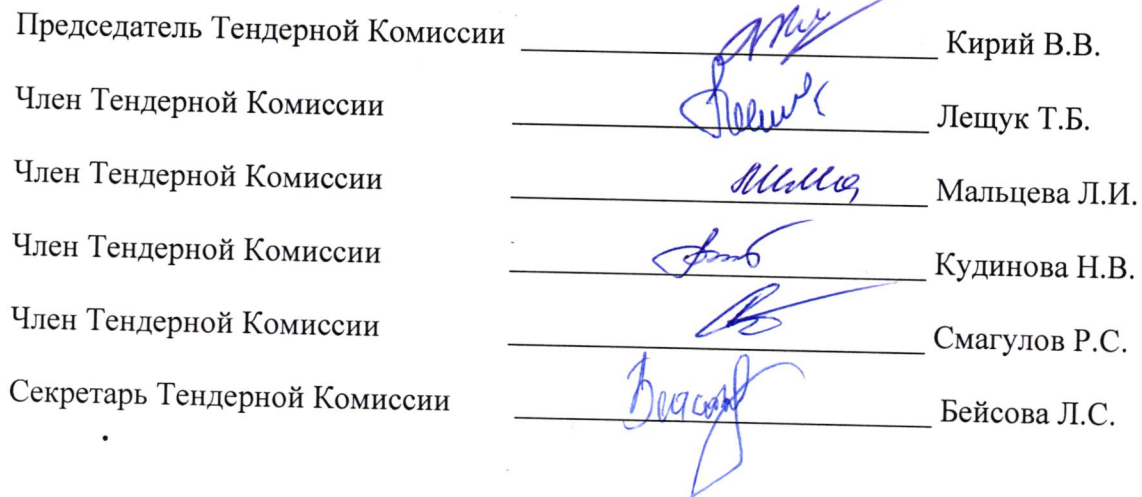 Председатель Тендерной Комиссии Кирий В.В.
Член Тендерной Комиссии Лещук Т.Б.
Член Тендерной Комиссии Мальцева Л.И.
Член Тендерной Комиссии Кудинова Н.В.
Член Тендерной Комиссии Смагулов Р.С.
Секретарь Тендерной Комиссии Бейсова Л.С.